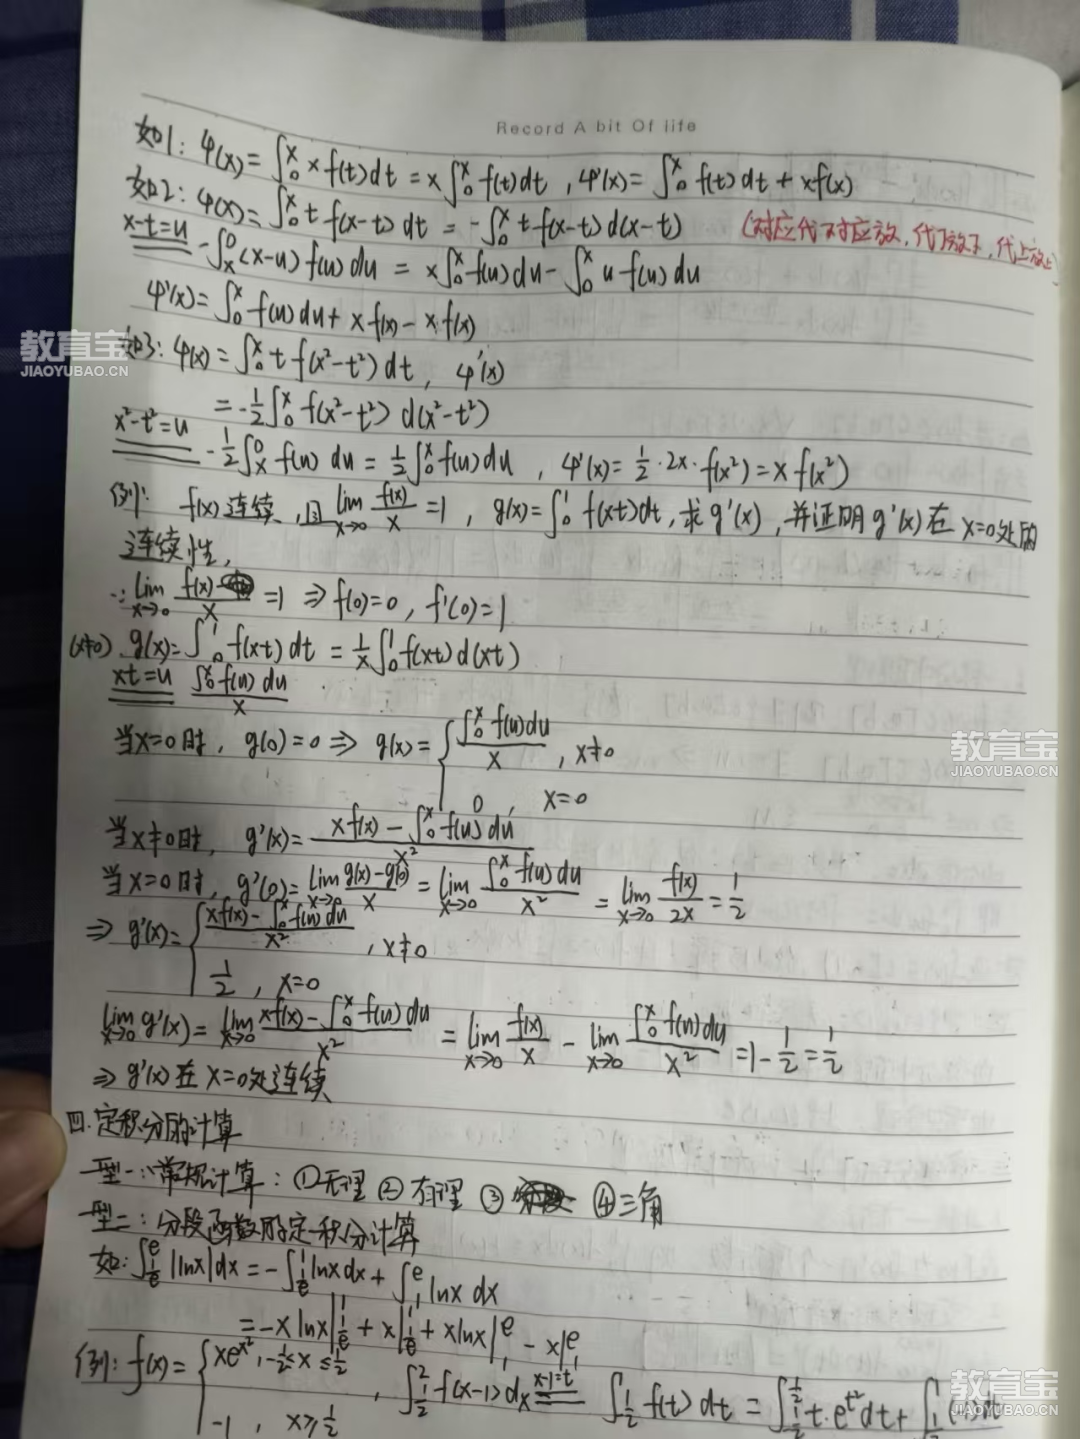 Record A bit Of life
如1: φ(x)=∫₀ˣ x f(t)dt = x∫₀ˣ f(t)dt , φ'(x)=∫₀ˣ f(t)dt + xf(x)
如2: φ(x)=∫₀ˣ t f(x-t) dt = -∫₀ˣ t f(x-t) d(x-t) (对应代对应放,代下放下,代上放上)
x-t=u -∫ₓ⁰ (x-u) f(u) du = x∫₀ˣ f(u)du - ∫₀ˣ u f(u)du
φ'(x)=∫₀ˣ f(u)du + x f(x) - x f(x)
如3: φ(x)=∫₀ˣ t f(x²-t²) dt, φ'(x)
= -1/2 ∫₀ˣ f(x²-t²) d(x²-t²)
x²-t²=u -1/2 ∫ₓ⁰ f(u) du = 1/2 ∫₀ˣ f(u)du , φ'(x)= 1/2 · 2x · f(x²) = x f(x²)
例1: f(x)连续,且 lim x→0 f(x)/x =1 , g(x)=∫₀¹ f(xt)dt,求g'(x),并证明g'(x)在x=0处的
连续性,
∵ lim x→0 f(x)/x =1 ⇒ f(0)=0, f'(0)=1
(x≠0) g(x)=∫₀¹ f(xt) dt = 1/x ∫₀¹ f(xt) d(xt)
xt=u ∫₀ˣ f(u) du / x
当x=0时, g(0)=0 ⇒ g(x)= { ∫₀ˣ f(u)du / x , x≠0
0, x=0
当x≠0时, g'(x)= (x f(x) - ∫₀ˣ f(u) du) / x²
当x=0时, g'(0)= lim x→0 (g(x)-g(0)) / x = lim x→0 ∫₀ˣ f(u)du / x² = lim x→0 f(x)/2x = 1/2
⇒ g'(x)= { (xf(x) - ∫₀ˣ f(u)du) / x² , x≠0
1/2 , x=0
lim x→0 g'(x)= lim x→0 (xf(x) - ∫₀ˣ f(u)du) / x² = lim x→0 f(x)/x - lim x→0 ∫₀ˣ f(u)du / x² = 1 - 1/2 = 1/2
⇒ g'(x)在x=0处连续
四.定积分的计算
型一:常规计算: ①无理 ②有理 ③ ④三角
型二: 分段函数的定积分计算
如: ∫_{1/e}^{e} |lnx|dx = -∫_{1/e}^{1} lnx dx + ∫₁ᵉ lnx dx
= -x lnx|_{1/e}^{1} + x|_{1/e}^{1} + xlnx|₁ᵉ - x|₁ᵉ
例: f(x)= { xe^{x²}, -1/2≤x≤1/2
-1 , x≥1/2 , ∫_{1/2}^{2} f(x-1) dx x-1=t ∫ f(t) dt = ∫ t·e^{t²}dt + ∫ (-1)dt
教育宝
JIAOYUBAO.CN
教育宝
JIAOYUBAO.CN
教育宝
JIAOYUBAO.CN